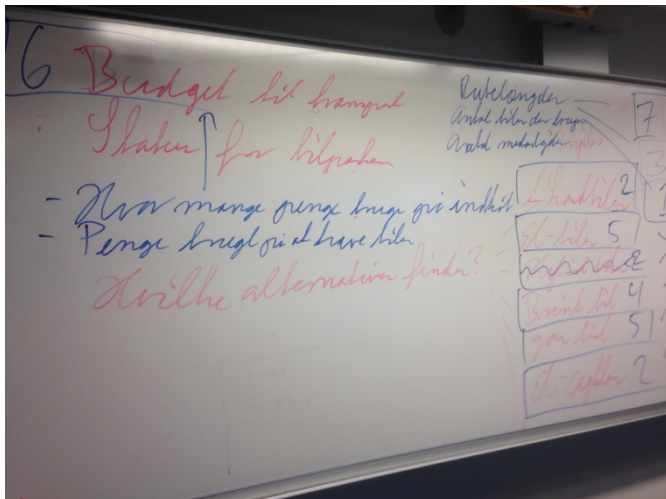 6 Budget til transport
Status for bilparken
- Hvor mange penge bruge på indkøb
- Penge brugt på at have biler
Hvilke alternativer findes?
Rutelængder
Antal biler der bruges
Antal medarbejder
7
3
2
El-biler 5
2
Brint bil 4
gas bil 5
El-cykler 2